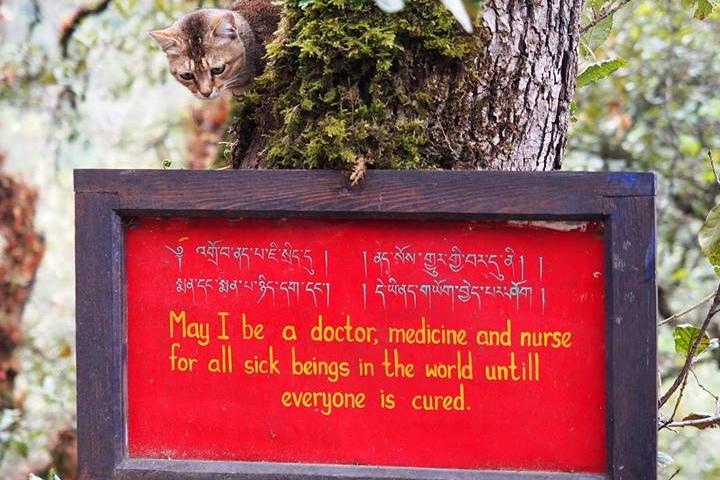 ༄། འགྲོ་བ་ནད་པ་ཇི་སྲིད་དུ། །ནད་སོས་གྱུར་གྱི་བར་དུ་ནི། །
སྨན་དང་སྨན་པ་ཉིད་དག་དང་། །དེ་ཡི་ནད་གཡོག་བྱེད་པར་ཤོག །
May I be a doctor, medicine and nurse
for all sick beings in the world untill
everyone is cured.